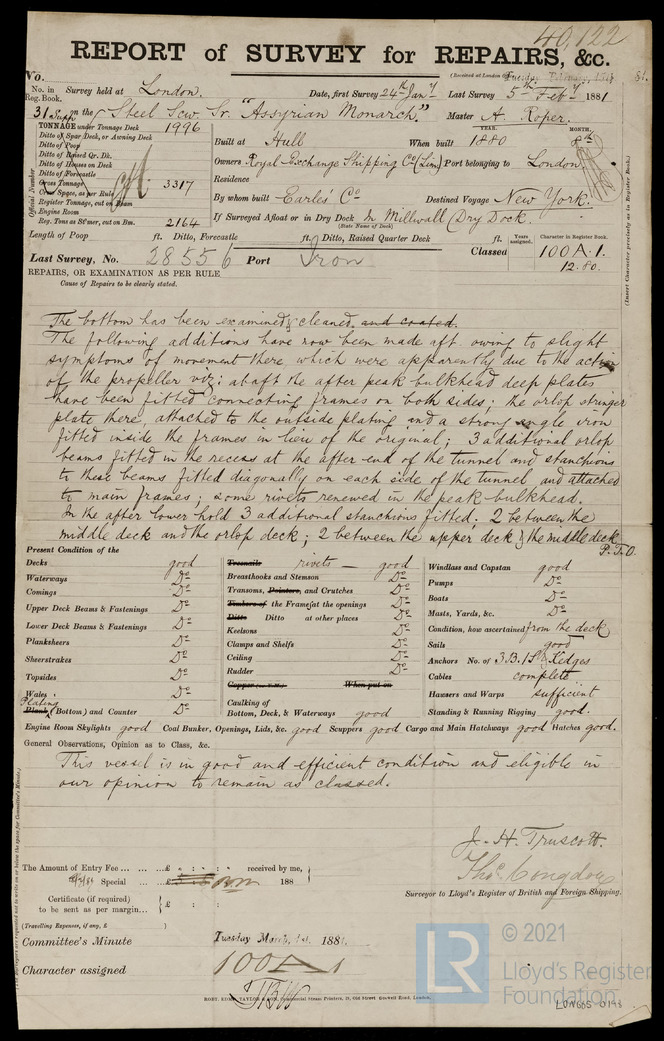 40,122
REPORT of SURVEY for REPAIRS, &c.
No.
(Received at London Tuesday February 188
No. in Reg. Book. Survey held at London. Date, first Survey 24th Jany Last Survey 5th Feby 1881
31 Supp on the Steel Scw. Sr. "Assyrian Monarch," Master A. Roper.
TONNAGE under Tonnage Deck 1996
Ditto of Spar Deck, or Awning Deck
Ditto of Poop
Ditto of Raised Qr. Dk.
Ditto of Houses on Deck
Ditto of Forecastle
Gross Tonnage 3317
Cr. Space, as per Rule
Register Tonnage, cut on Beam
Engine Room
Reg. Tons as St'mer, cut on Bm. 2164
Official Number
Built at Hull When built YEAR. 1880 MONTH. 8th
Owners Royal Exchange Shipping Co (Lim) Port belonging to London
Residence
By whom built Earles' Co Destined Voyage New York.
If Surveyed Afloat or in Dry Dock In Millwall Dry Dock.
(State Name of Dock)
Length of Poop ft. Ditto, Forecastle ft. Ditto, Raised Quarter Deck ft.
Years assigned. Character in Register Book.
Last Survey, No. 28556 Port Iron Classed 100 A. 1.
12.80.
(Insert Character precisely as in Register Book.)
REPAIRS, OR EXAMINATION AS PER RULE
Cause of Repairs to be clearly stated.
The bottom has been examined & cleaned and coated.
The following additions have now been made aft owing to slight
symptoms of movement there which were apparently due to the action
of the propeller viz: abaft the after peak bulkhead deep plates
have been fitted connecting frames on both sides; the orlop stringer
plate there, attached to the outside plating and a strong angle iron
fitted inside the frames in lieu of the original; 3 additional orlop
beams fitted in the recess at the after end of the tunnel and stanchions
to these beams fitted diagonally on each side of the tunnel, and attached
to main frames; some rivets renewed in the peak bulkhead.
In the after lower hold 3 additional stanchions fitted. 2 between the
middle deck and the orlop deck; 2 between the upper deck & the middle deck
P.T.O.
Present Condition of the
Decks good
Waterways Do
Comings Do
Upper Deck Beams & Fastenings Do
Lower Deck Beams & Fastenings Do
Planksheers Do
Sheerstrakes Do
Topsides Do
Wales Do
Plating
Plank (Bottom) and Counter Do
Treenails rivets — good
Breasthooks and Stemson Do
Transoms, Pointers, and Crutches Do
Timbers of the Frames at the openings Do
Ditto Ditto at other places Do
Keelsons Do
Clamps and Shelfs Do
Ceiling Do
Rudder Do
Copper When put on
Caulking of
Bottom, Deck, & Waterways good
Windlass and Capstan good
Pumps Do
Boats Do
Masts, Yards, &c. Do
Condition, how ascertained from the deck
Sails good
Anchors No. of 3 B. 1 St. 2 Kedges
Cables complete
Hawsers and Warps sufficient
Standing & Running Rigging good.
Engine Room Skylights good Coal Bunker, Openings, Lids, &c. good Scuppers good Cargo and Main Hatchways good Hatches good.
General Observations, Opinion as to Class, &c.
This vessel is in good and efficient condition and eligible in
our opinion to remain as classed.
J. H. Truscott.
Thos. Congdon
Surveyor to Lloyd's Register of British and Foreign Shipping.
The Amount of Entry Fee ... ... ... £ : : received by me,
Special ... £ 188
Certificate (if required) to be sent as per margin... £ : :
(Travelling Expenses, if any, £ )
Committee's Minute Tuesday March 1st 1881.
Character assigned 100 A 1
LR
© 2021
Lloyd's Register
Foundation
LON665-0198